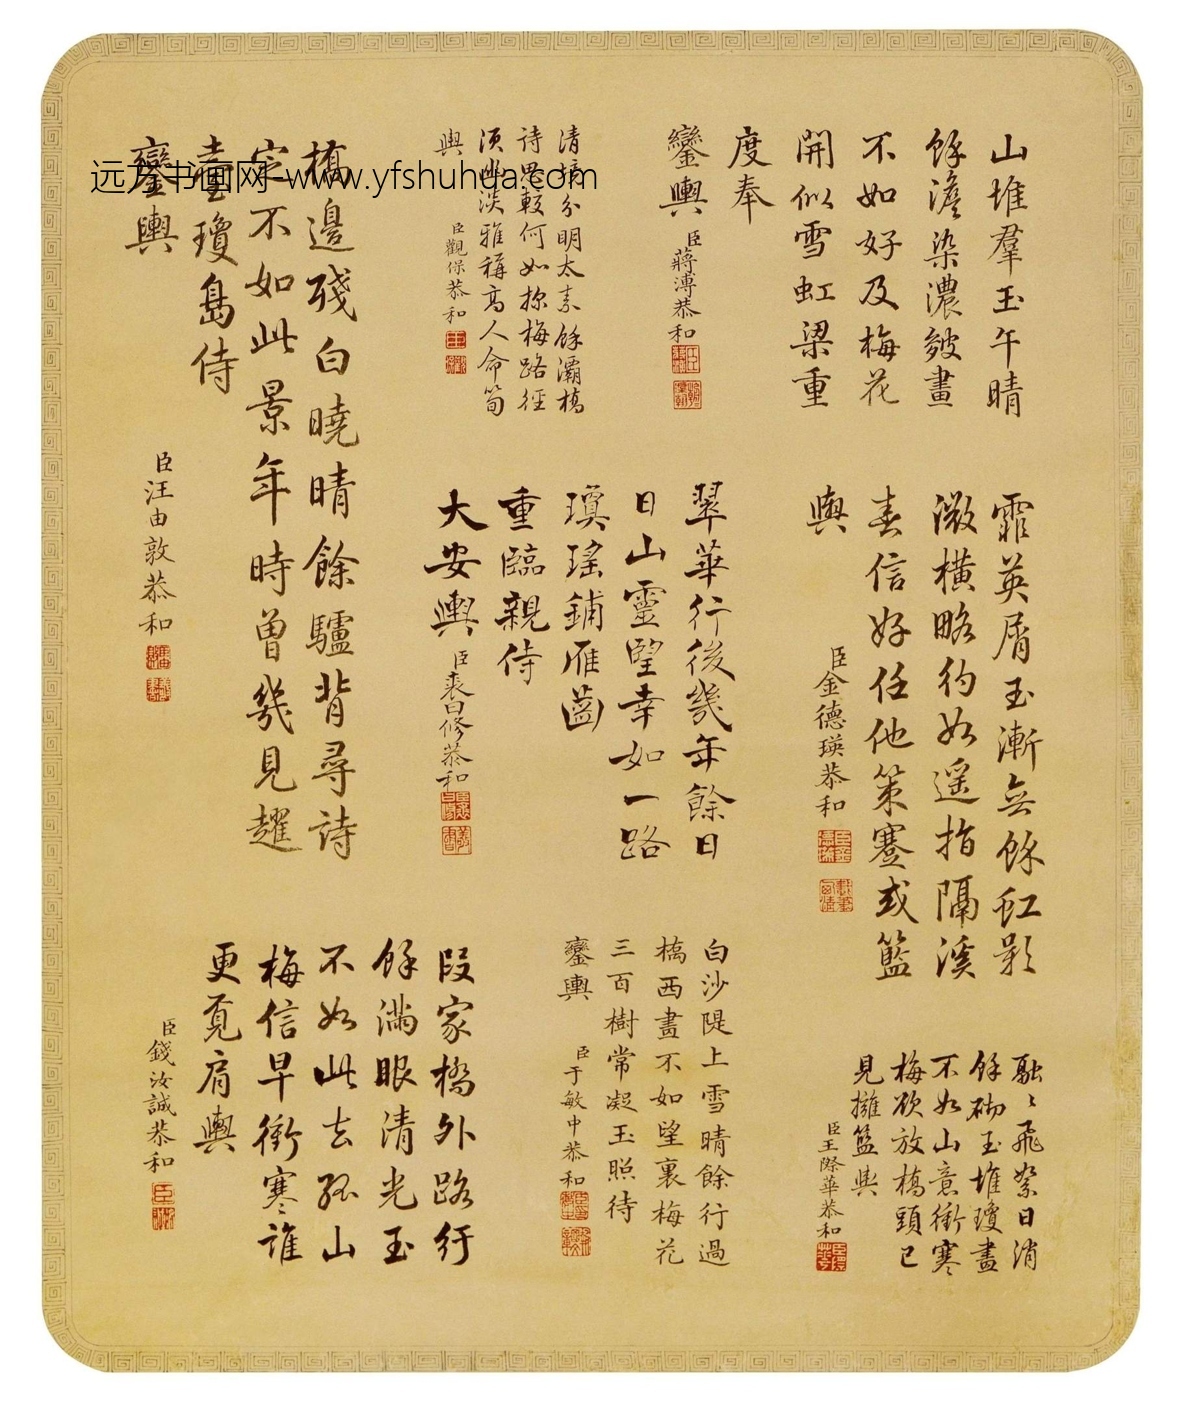 山堆羣玉午晴
餘澹染濃皴畫
不如好及梅花
開似雪虹梁重
度奉
鑾輿
臣蔣溥恭和
霏英屑玉漸無餘虹影
微橫略彴如遥指隔溪
春信好任他策蹇或籃
輿
臣金德瑛恭和
融〻飛絮日消
餘砌玉堆瓊畫
不如山意衝寒
梅欲放橋頭已
見擁籃輿
臣王際華恭和
清境分明太素餘灞橋
詩思較何如探梅路徑
須幽淡雅稱高人命筍
輿
臣觀保恭和
翠華行後幾年餘日
日山靈望幸如一路
瓊瑤鋪雁齒
重臨親侍
大安輿
臣裘曰修恭和
白沙隄上雪晴餘行過
橋西畫不如望裏梅花
三百樹常凝玉照待
鑾輿
臣于敏中恭和
橋邊殘白曉晴餘驢背尋詩
定不如此景年時曾幾見趯
臺瓊島侍
鑾輿
臣汪由敦恭和
段家橋外路行
餘滿眼清光玉
不如此去孤山
梅信早衝寒誰
更覔肩輿
臣錢汝誠恭和
远方书画网-www.yfshuhua.com